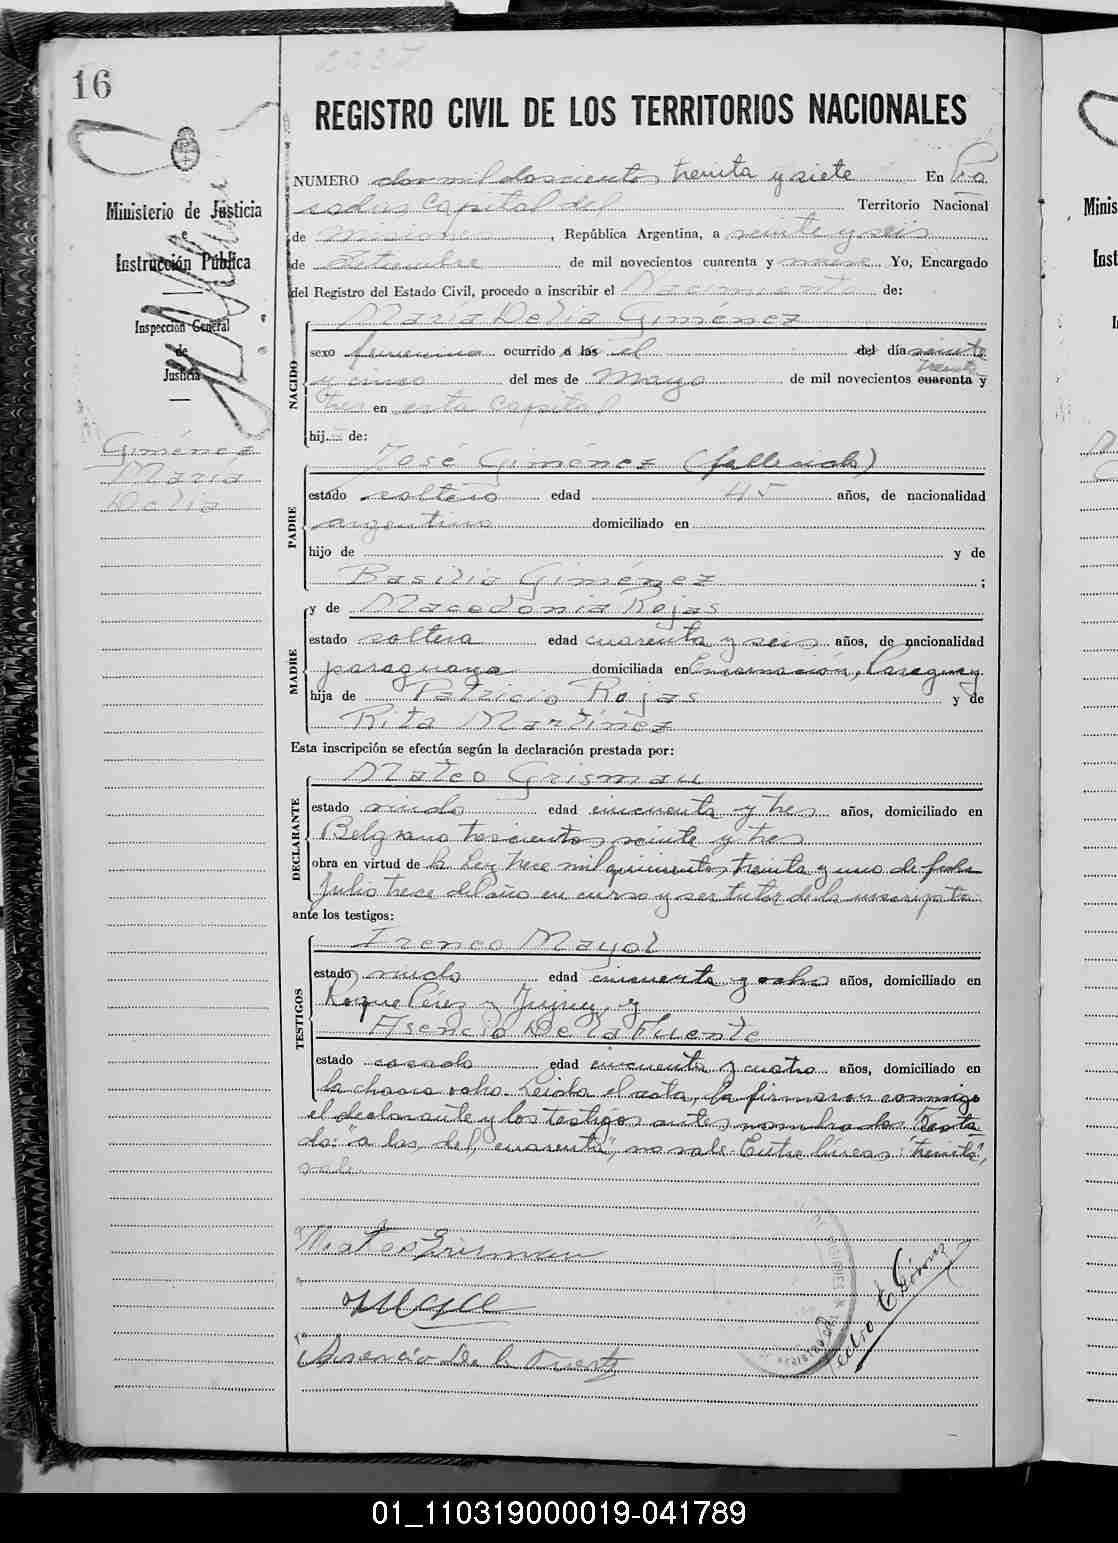 16
2237
REGISTRO CIVIL DE LOS TERRITORIOS NACIONALES
Ministerio de Justicia
e
Instrucción Pública
Inspección General
de
Justicia
Giménez
María
Delia
NUMERO dos mil doscientos treinta y siete En Po
sadas Capital del Territorio Nacional
de Misiones, República Argentina, a veinte y seis
de Setiembre de mil novecientos cuarenta y nueve Yo, Encargado
del Registro del Estado Civil, procedo a inscribir el Nacimiento de:
NACIDO
María Delia Giménez
sexo femenino ocurrido a las el del día veinte
treinta
y cinco del mes de Mayo de mil novecientos cuarenta y
tres en esta capital
hij.... de:
PADRE
José Giménez (fallecido)
estado soltero edad 45 años, de nacionalidad
argentino domiciliado en
hijo de y de
Basilia Giménez ;
MADRE
y de Macedonia Rojas
estado soltera edad cuarenta y seis años, de nacionalidad
paraguaya domiciliada en Encarnación, Paraguay
hija de Patricio Rojas y de
Rita Martínez
Esta inscripción se efectúa según la declaración prestada por:
DECLARANTE
Mateo Grisman
estado viudo edad cincuenta y tres años, domiciliado en
Belgrano trescientos veinte y tres
obra en virtud de la Ley trece mil quinientos treinta y uno de fecha
Julio trece del año en curso y ser tutor de la inscripta
ante los testigos:
TESTIGOS
Ireneo Mayol
estado viudo edad cincuenta y ocho años, domiciliado en
Roque Pérez y Jujuy, y
Asencio De la Fuente
estado casado edad cincuenta y cuatro años, domiciliado en
la chacra ocho. Leida el acta, la firmaron conmigo
el declarante y los testigos antes nombrados. Testa
do: "a las, del, cuarenta", no vale. Entre líneas: "treinta",
vale.
Mateo Grisman
Asencio De la Fuente
Pedro E.
01_110319000019-041789